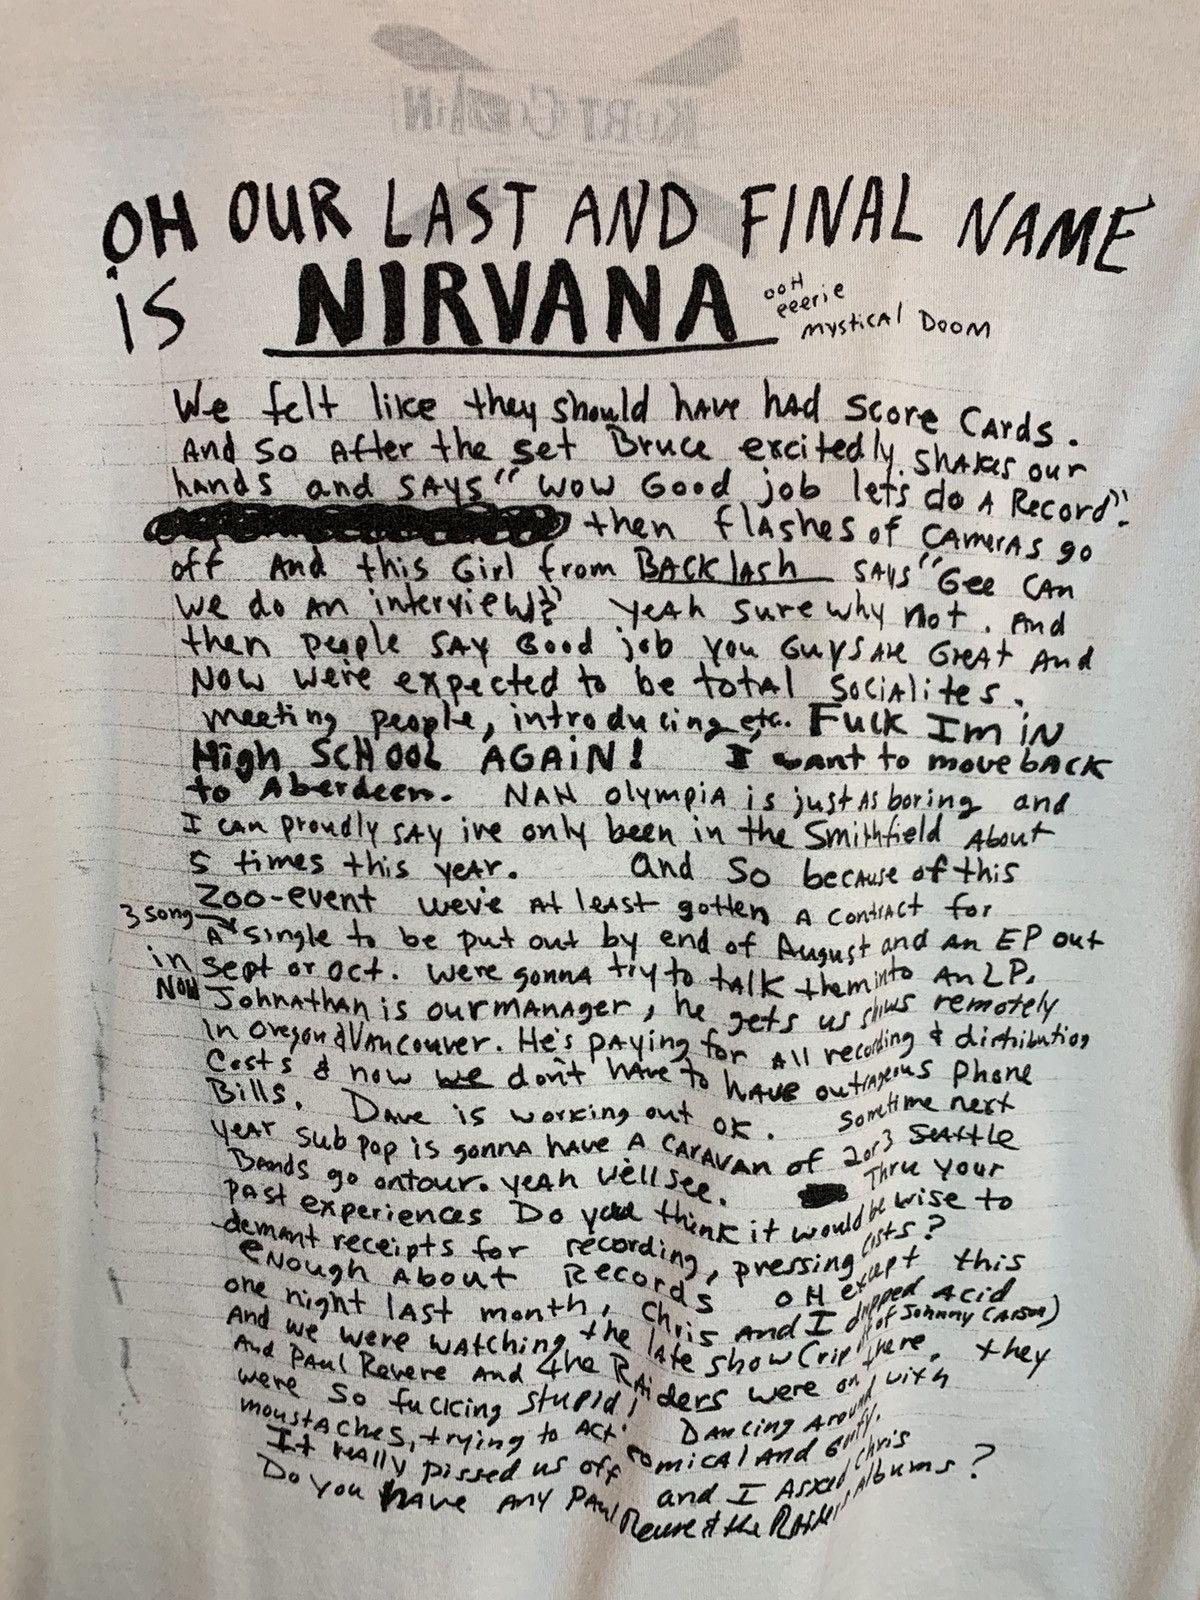 KURT COBAIN
OH OUR LAST AND FINAL NAME
is NIRVANA ooH eeerie mystical Doom
We felt like they should have had score cards.
And so after the set Bruce excitedly shakes our
hands and says "wow Good job lets do a Record".
then flashes of cameras go
off And this Girl from BACKlash says "Gee can
we do an interview?" yeah sure why not. And
then people say Good job you Guys are Great and
now were expected to be total socialites.
meeting people, introducing etc. Fuck Im in
High SCHOOL AGAIN! I want to move back
to Aberdeen. NAH olympia is just as boring and
I can proudly say ive only been in the Smithfield about
5 times this year. and so because of this
zoo-event weve at least gotten a contract for
3 song
A single to be put out by end of August and an EP out
in sept or oct. were gonna try to talk them into an LP.
Now Johnathan is our manager, he gets us shows remotely
in oregon & Vancouver. He's paying for all recording & distribution
costs & now we dont have to have outrageous phone
Bills. Dave is working out ok. Sometime next
year sub pop is gonna have a caravan of 2 or 3 Seattle
Bands go on tour. yeah we'll see. Thru your
past experiences Do you think it would be wise to
demant receipts for recording, pressing costs?
enough about Records oH except this
one night last month, Chris and I dropped acid
And we were watching the late show (rip off of Johnny Carson)
And Paul Revere and the Raiders were on there. they
were so fucking stupid! Dancing around with
moustaches, trying to act comical and goofy.
It really pissed us off and I Asked Chris
Do you have any Paul Revere & the Raiders Albums?